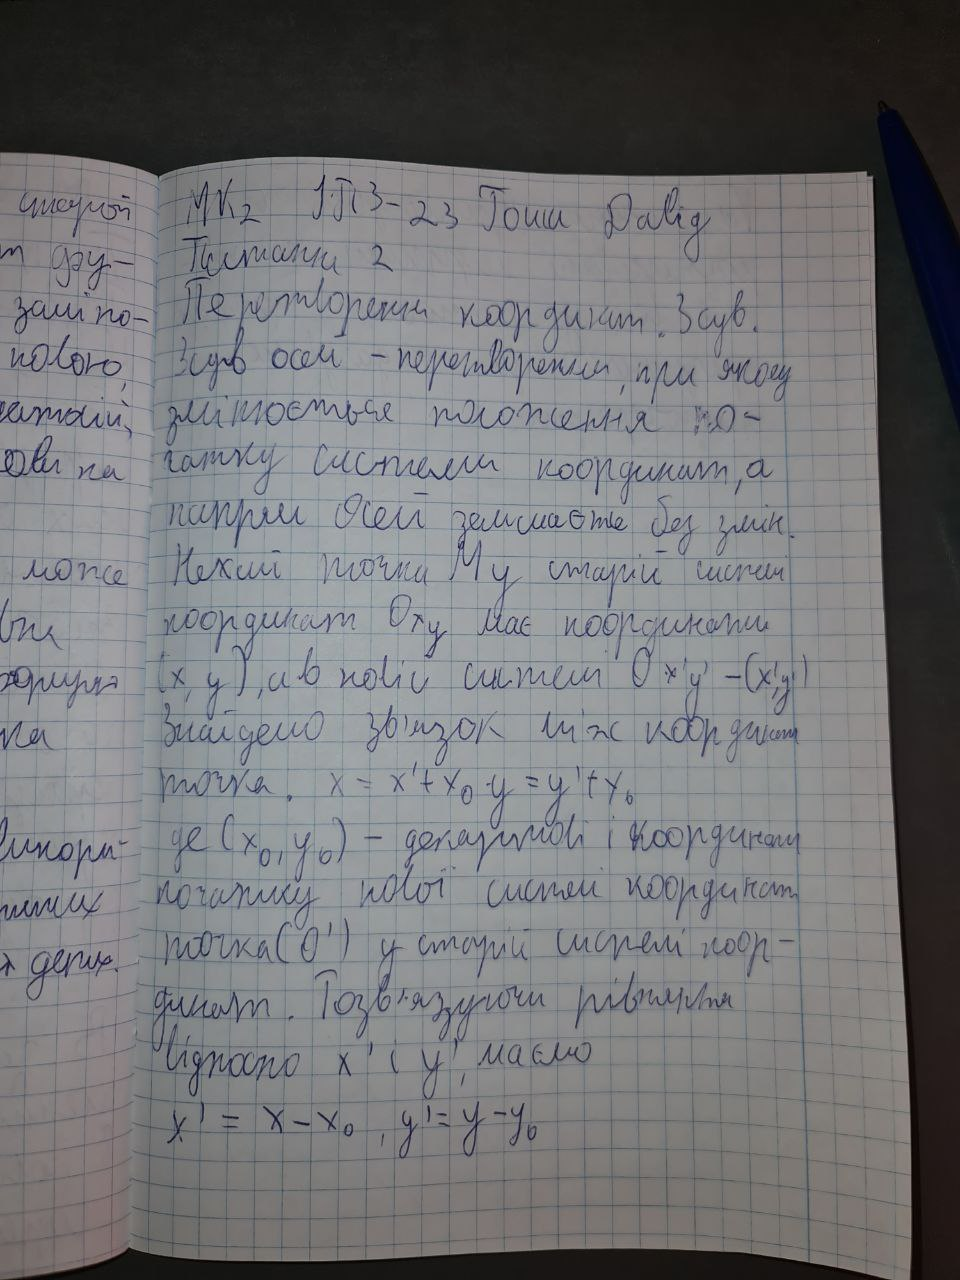 старой
фу-
заміно-
новою,
ови на
може
МК2 ІПЗ-23 Гоши Давід
Питання 2
Перетворення координат. Зсув.
Зсув осей - перетворення, при якому
змінюється положення по-
чатку системи координат, а
напрям осей залишаєте без змін.
Нехай точка M у старій системі
координат Oxy має координати
(x, y), а в новій системі O'x'y' - (x', y')
Знайдемо зв'язок між координат
точка. x = x' + x₀ y = y' + y₀
де (x₀, y₀) - декартові і координати
початку нової системі координат
точка (O') у старій системі коор-
динат. Розв'язуючи рівняння
відносно x' і y', маємо
x' = x - x₀, y' = y - y₀